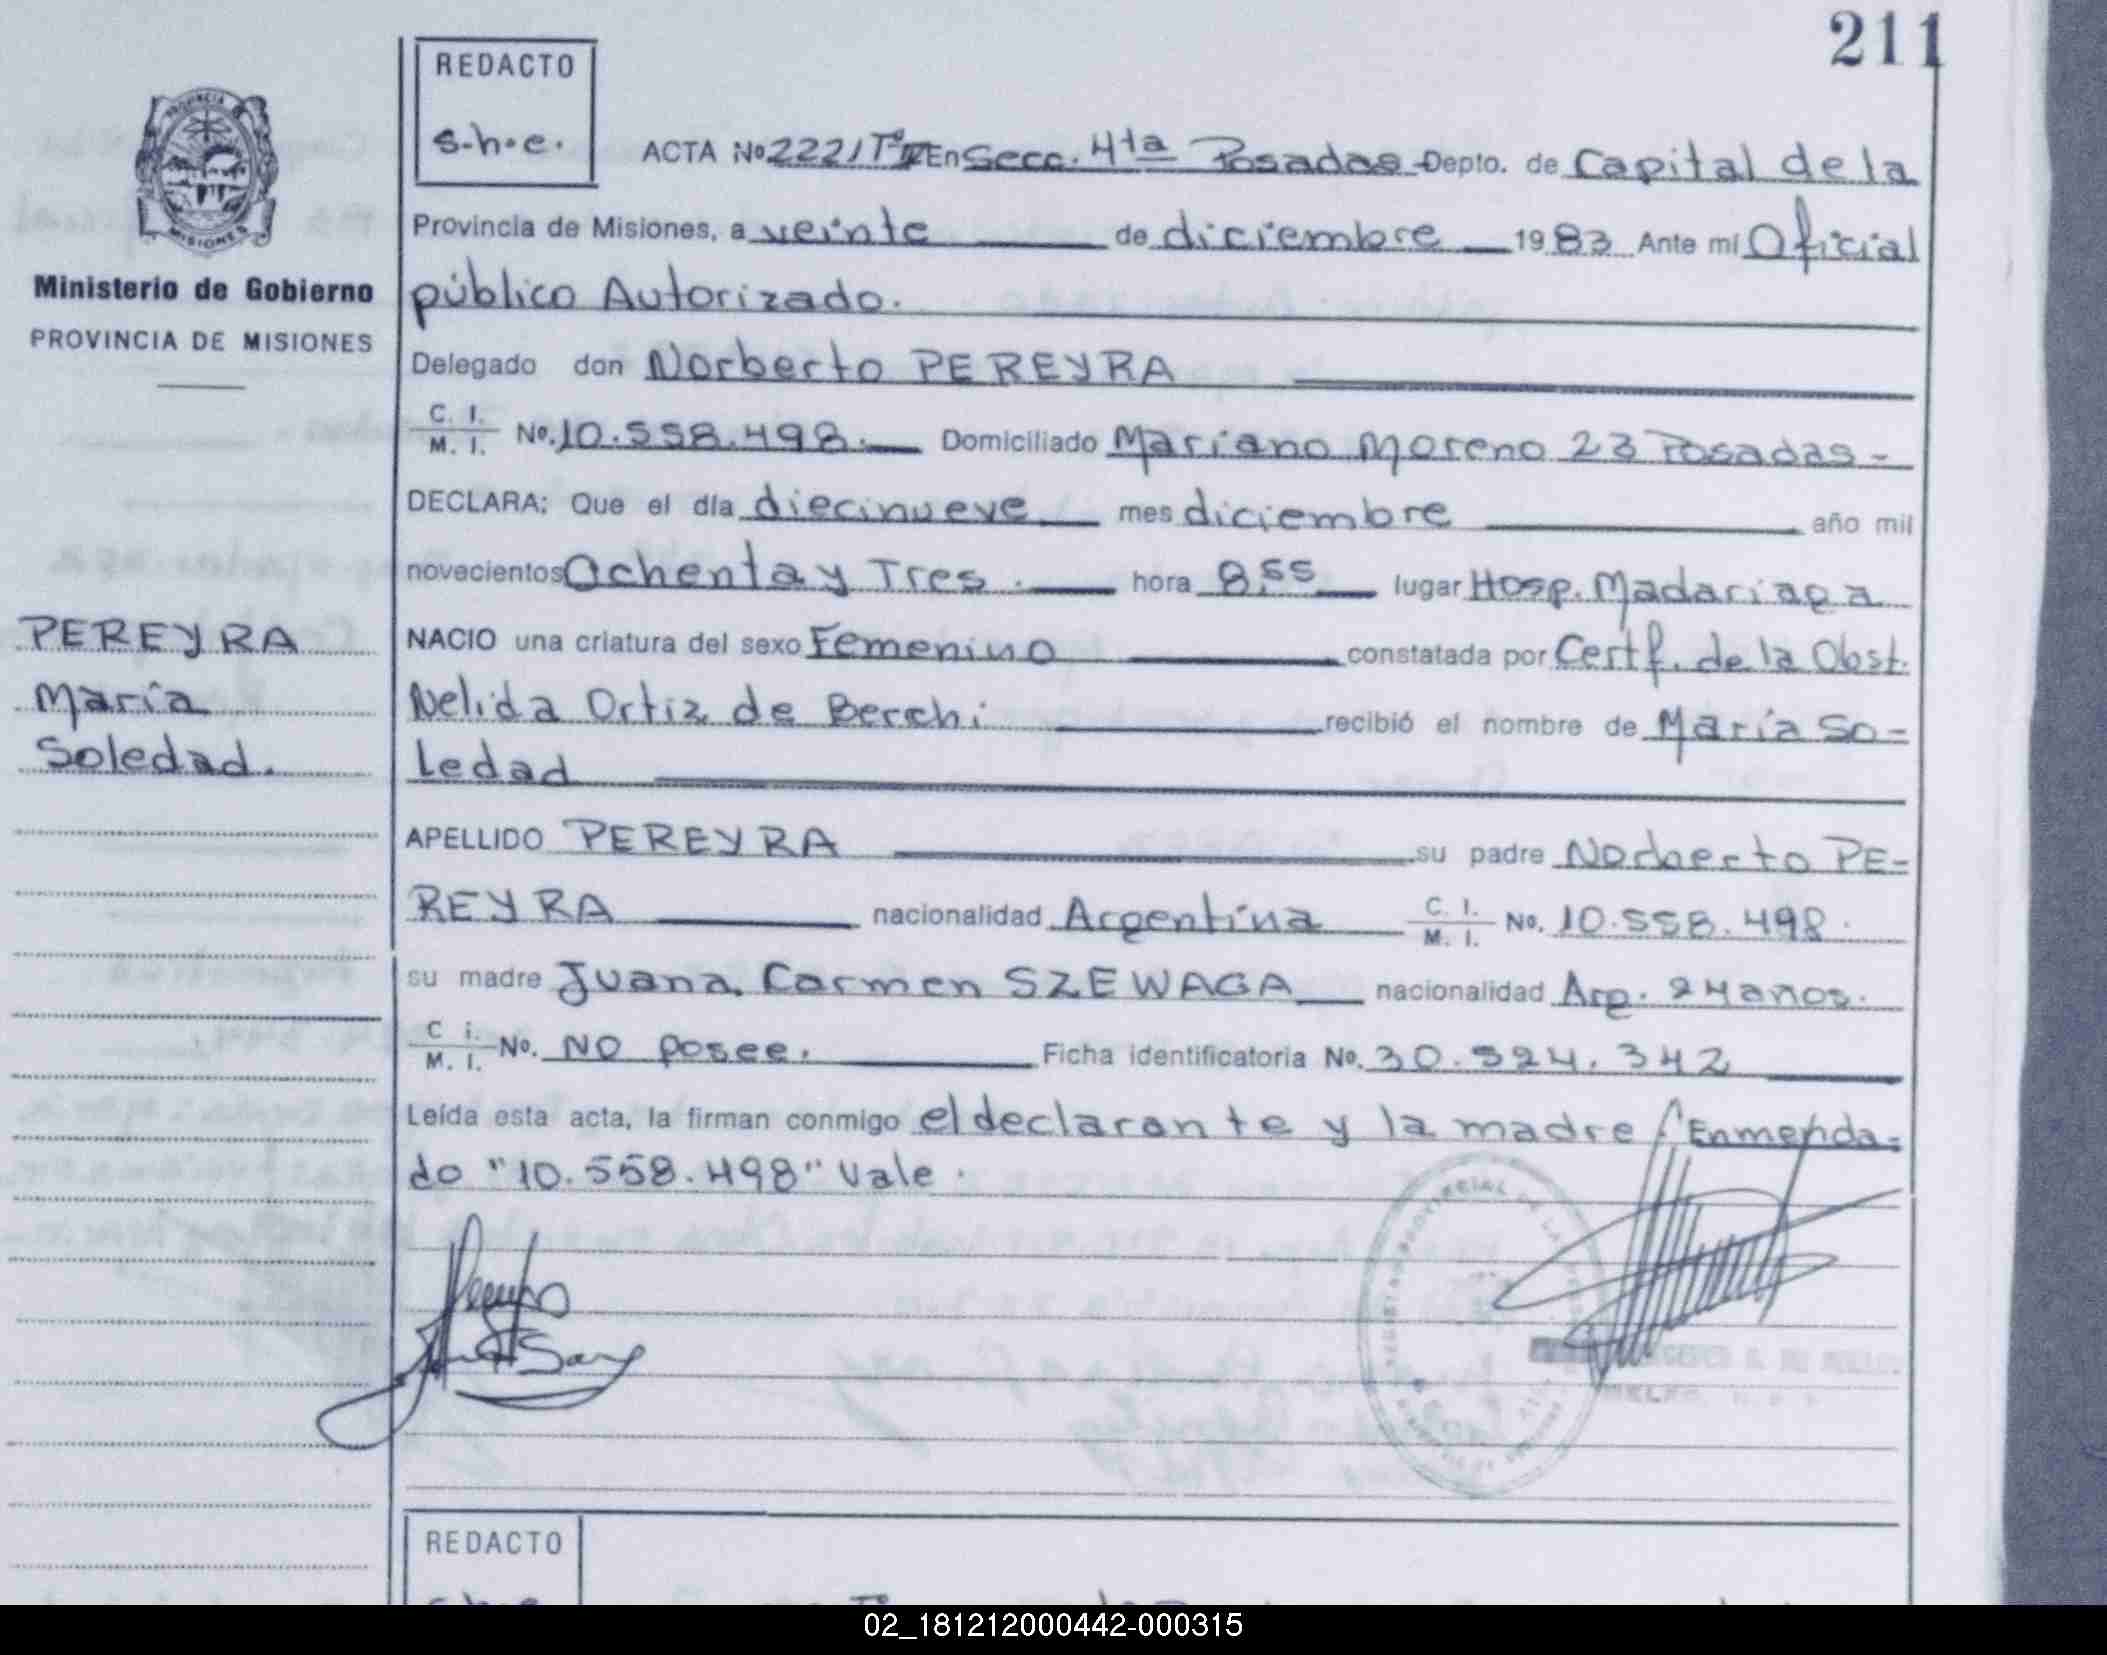 211
REDACTO
s.h.e.
ACTA Nº 2221 Tº En Secc. 4ta Posadas Depto. de Capital de la
Provincia de Misiones, a veinte de diciembre 1983 Ante mí Oficial
público Autorizado.
Ministerio de Gobierno
PROVINCIA DE MISIONES
Delegado don Norberto PEREYRA
C. I. M. I. Nº. 10.558.498. Domiciliado Mariano Moreno 23 Posadas-
DECLARA: Que el día diecinueve mes diciembre año mil
novecientos Ochenta y Tres. hora 8,55 lugar Hosp. Madariaga
PEREYRA
María
Soledad.
NACIO una criatura del sexo Femenino constatada por Certf. de la Obst.
Nelida Ortiz de Berchi recibió el nombre de María So=
ledad
APELLIDO PEREYRA su padre Norberto PE=
REYRA nacionalidad Argentina C. I. M. I. Nº. 10.558.498.
su madre Juana Carmen SZEWAGA nacionalidad Arg. 24 años.
C i. M. I. No. NO posee. Ficha identificatoria No. 30.524.342
Leída esta acta, la firman conmigo el declarante y la madre Enmenda=
do "10.558.498" Vale.
REDACTO
02_181212000442-000315